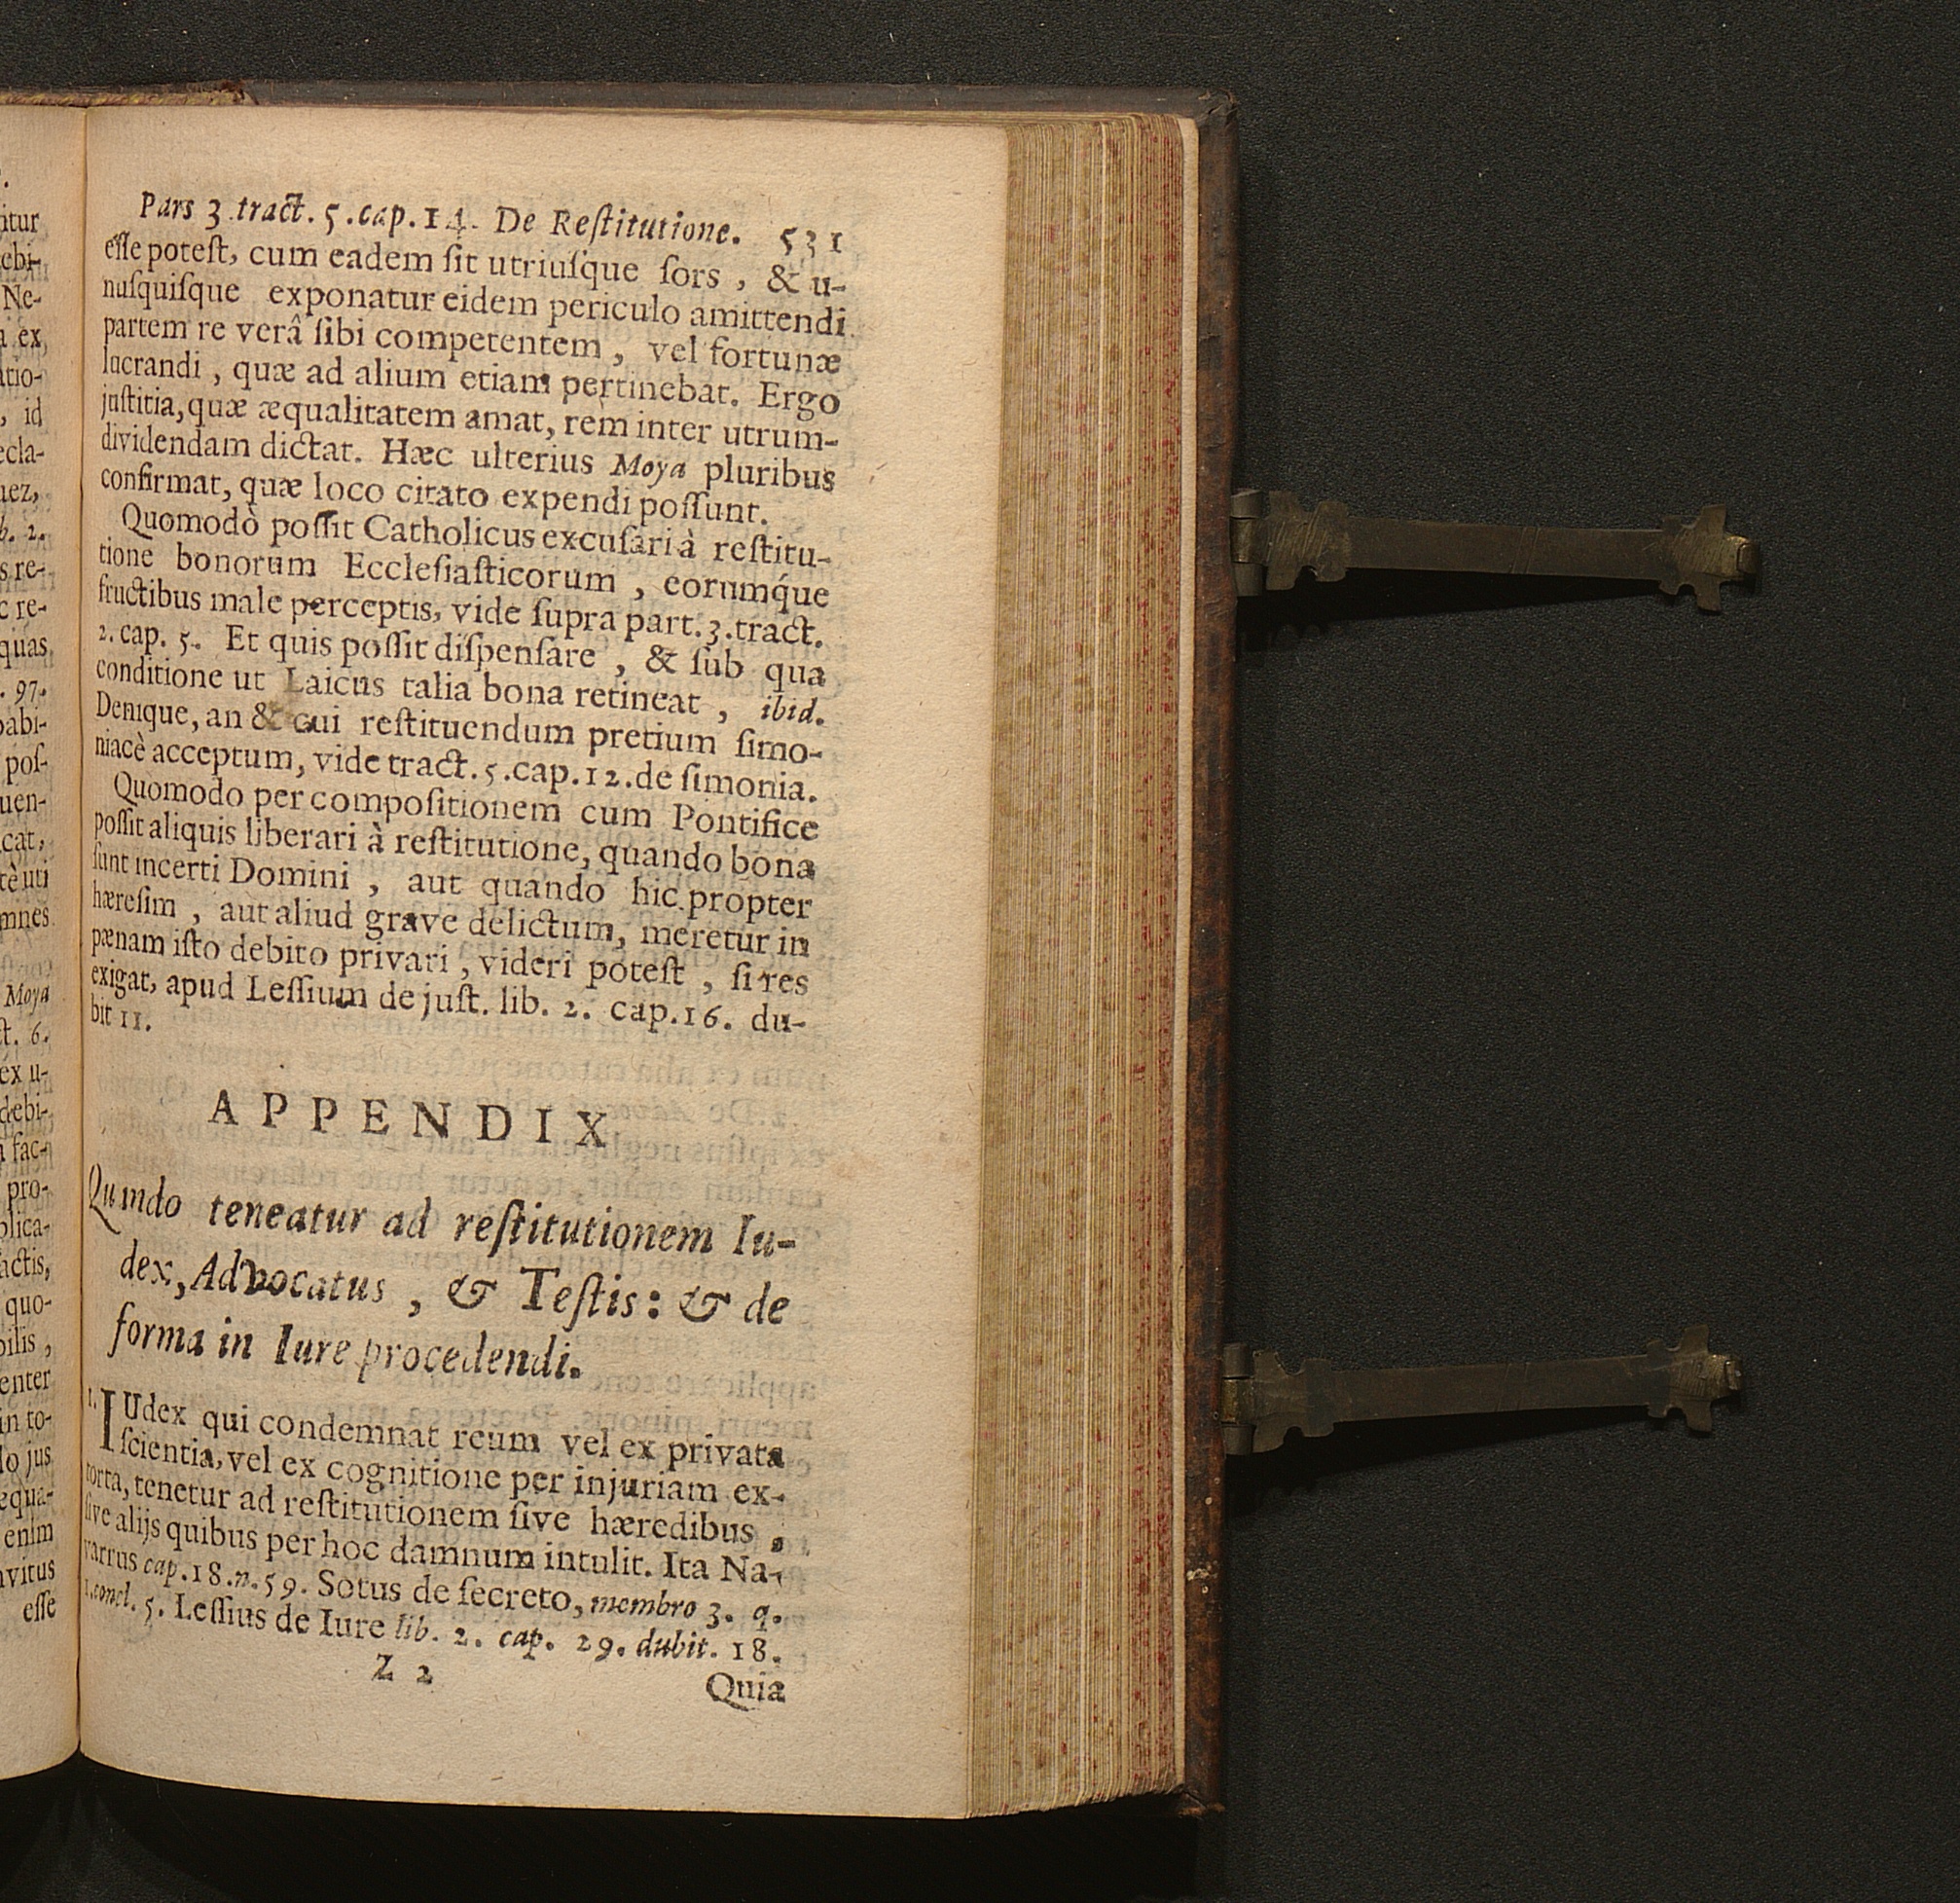 Pars 3 tract. 5. cap. 14. De Reſtitutione. 531
eſſe poteſt, cum eadem ſit utriuſque ſors, & u-
nuſquiſque exponatur eidem periculo amittendi
partem re verâ ſibi competentem, vel fortunæ
lucrandi, quæ ad alium etiam pertinebat. Ergo
juſtitia, quæ æqualitatem amat, rem inter utrum-
dividendam dictat. Hæc ulterius Moya pluribus
confirmat, quæ loco citato expendi poſſunt.
Quomodò poſſit Catholicus excuſari à reſtitu-
tione bonorum Eccleſiaſticorum, eorumq́ue
fructibus male perceptis, vide ſupra part. 3. tract.
2. cap. 5. Et quis poſſit diſpenſare, & ſub qua
conditione ut Laicus talia bona retineat, ibid.
Denique, an & cui reſtituendum pretium ſimo-
niacè acceptum, vide tract. 5. cap. 12. de ſimonia.
Quomodo per compoſitionem cum Pontifice
poſſit aliquis liberari à reſtitutione, quando bona
ſunt incerti Domini, aut quando hic propter
hæreſim, aut aliud grave delictum, meretur in
pænam iſto debito privari, videri poteſt, ſi res
exigat, apud Leſſium de juſt. lib. 2. cap. 16. du-
bit 11.
APPENDIX
Quando teneatur ad reſtitutionem Iu-
dex, Advocatus, & Teſtis: & de
forma in Iure procedendi.
1. IUdex qui condemnat reum vel ex privata
ſcientia, vel ex cognitione per injuriam ex-
torta, tenetur ad reſtitutionem ſive hæredibus,
ſive alijs quibus per hoc damnum intulit. Ita Na-
varrus cap. 18. n. 59. Sotus de ſecreto, membro 3. q.
1. concl. 5. Leſſius de Iure lib. 2. cap. 29. dubit. 18.
Z 2 Quia